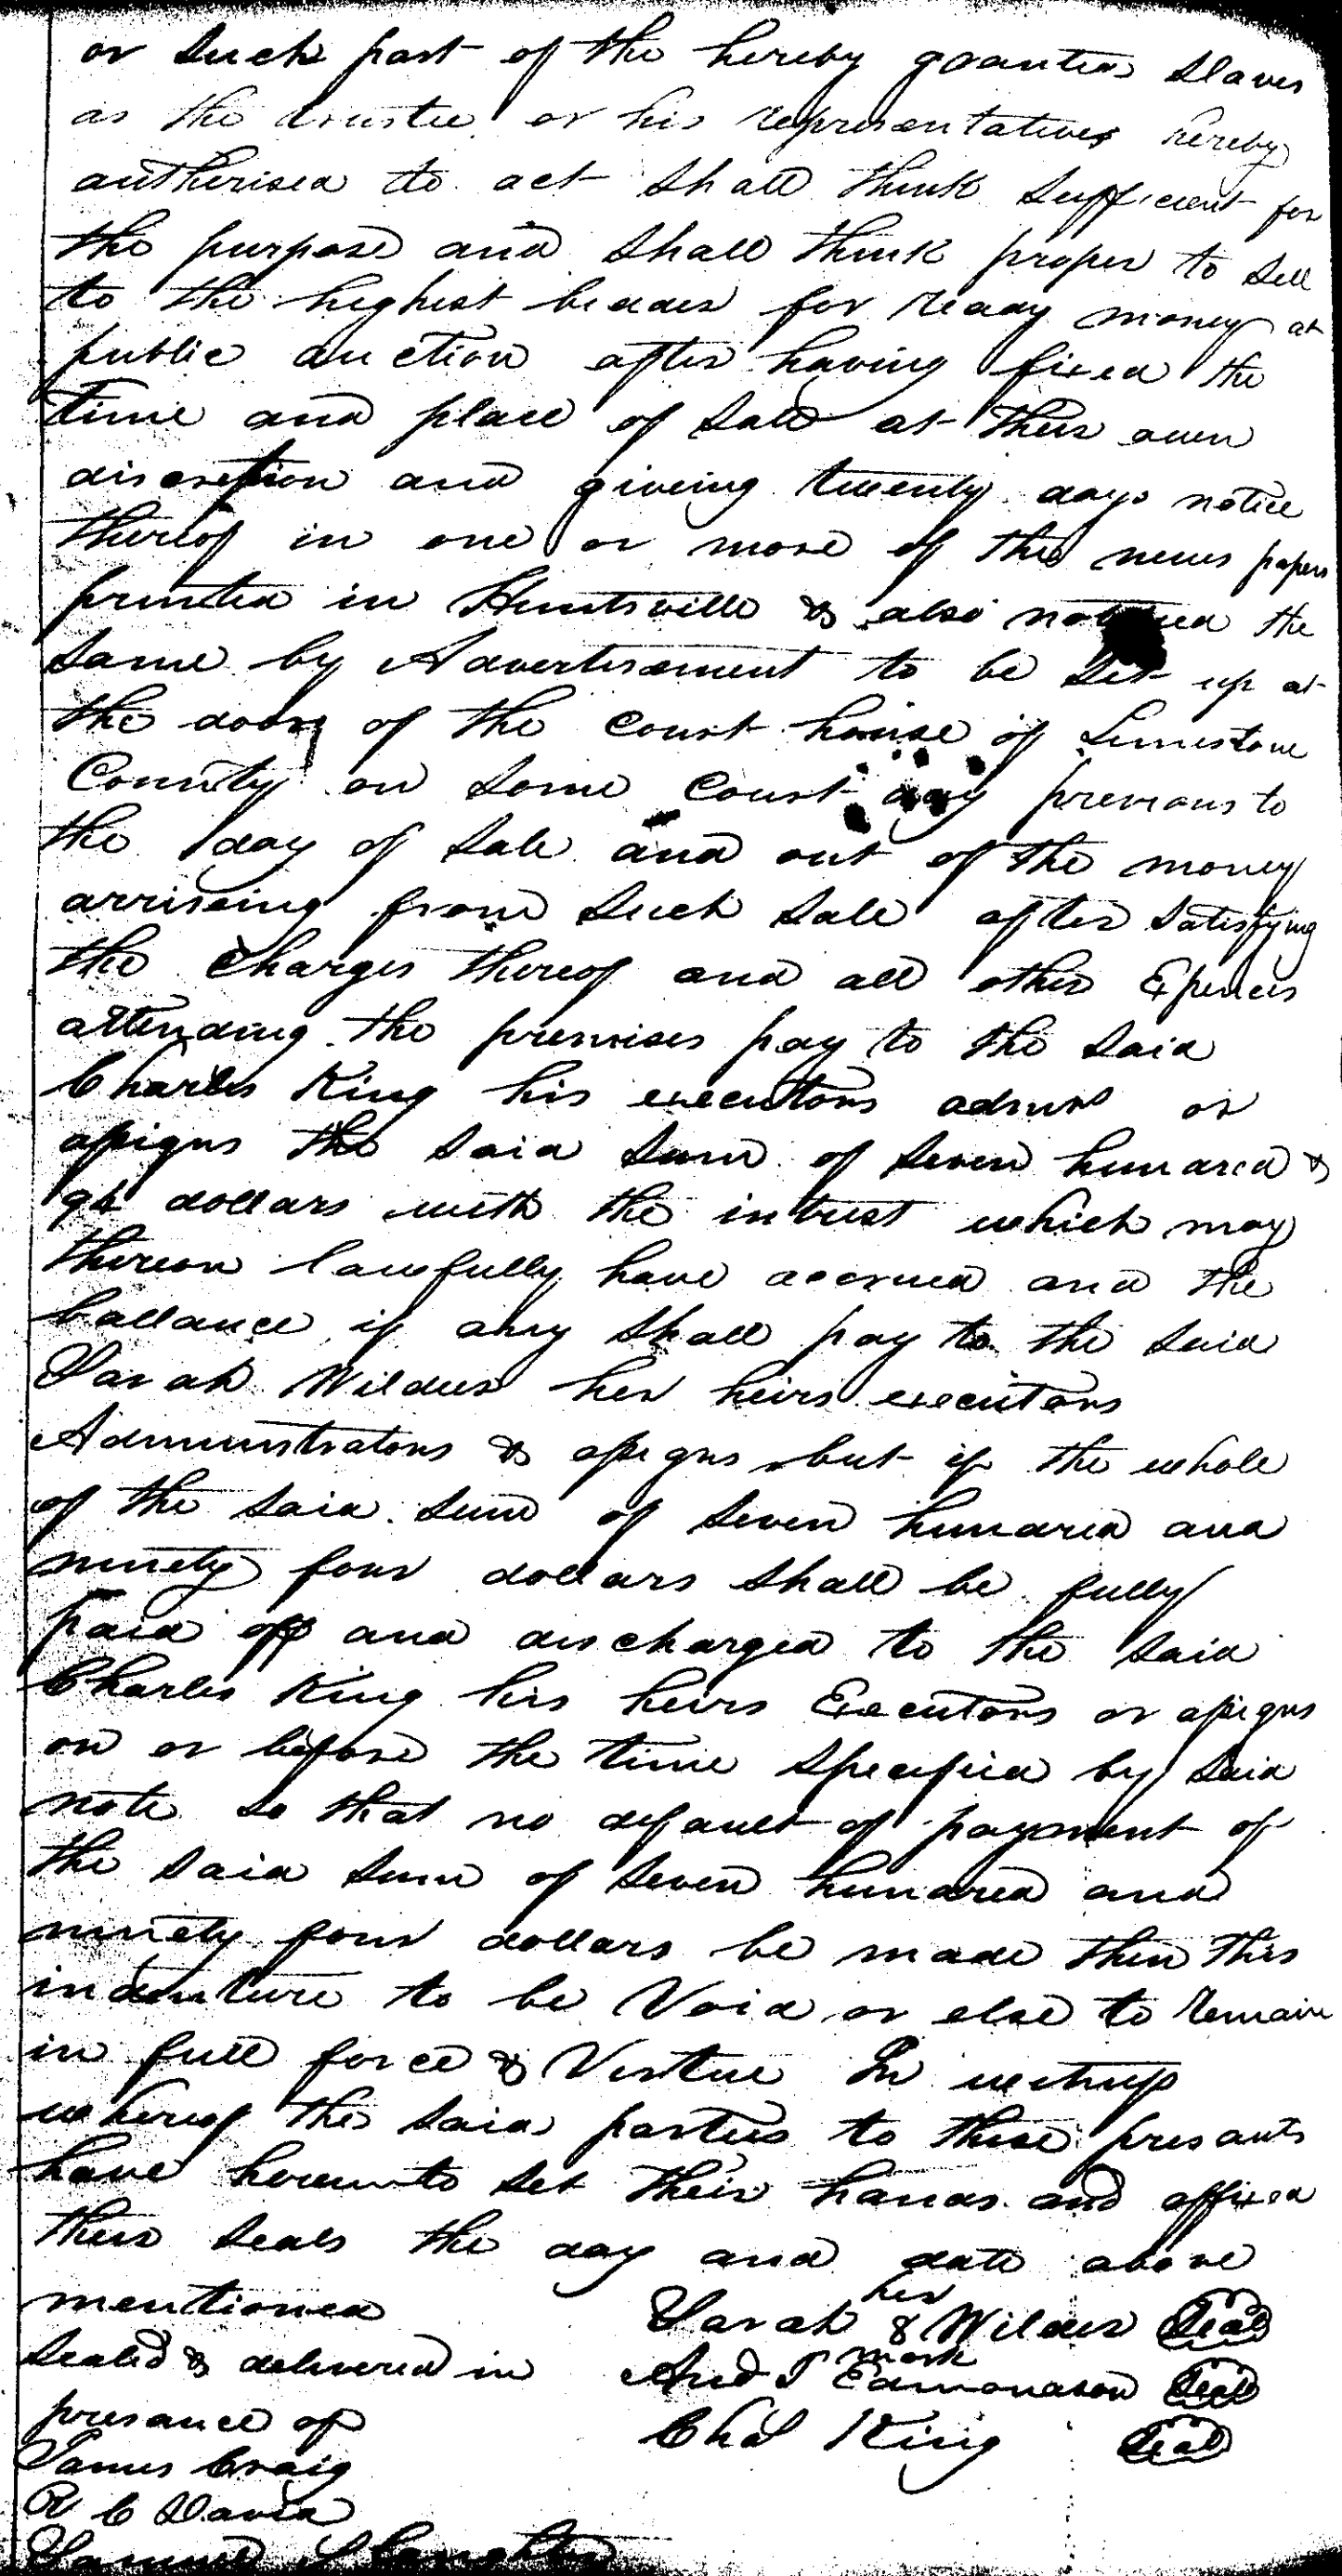 or such part of the hereby granted slaves
as the trustee or his representatives hereby
autherised to act shall think sufficient for
the purpose and shall think proper to sell
to the highest bidder for ready money at
public auction after having fixed the
time and place of sale at their own
discretion and giveing twenty days notice
thereof in one or more of the news papers
printed in Huntsville & also the
same by Advertisement to be set up at
the door of the court house of Limestone
County on some court day previous to
the day of sale and out of the money
arriseing from such sale after satisfying
the charges thereof and all other Expences
attending the premises pay to the said
Charles King his executors admrs or
assigns the said sum of seven hundred &
94 dollars with the intrest which may
thereon lawfully have accrued and the
ballance if any shall pay to the said
Sarah Wilder her heirs executors
Administrators & assigns but if the whole
of the said sum of seven hundred and
ninety four dollars shall be fully
paid off and discharged to the said
Charles King his heirs Executors or assigns
on or before the time specified by said
note so that no default of payment of
the said sum of seven hundred and
ninety four dollars be made then this
indenture to be Void or else to remain
in full force & Virtue In witness
whereof the said parties to these presants
have hereunto set their hands and affixed
their seals the day and date above
mentioned
her
Sarah 8 Wilder Seal
mark
Sealed & delivered in And J Edmondson Seal
presance of Chas King Seal
James Craig
R C David
Samuel Slaughter